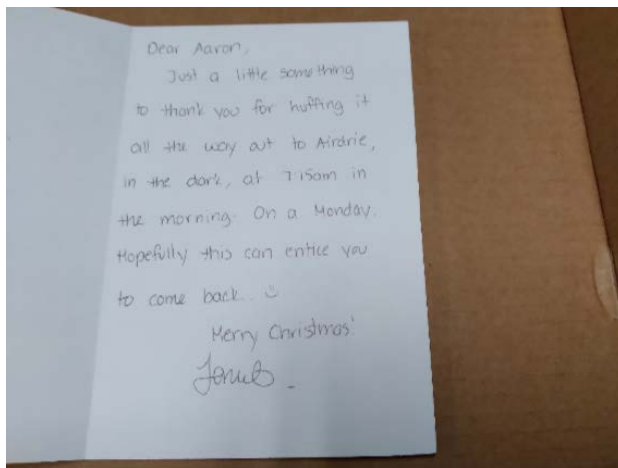 Dear Aaron,
Just a little something
to thank you for huffing it
all the way out to Airdrie,
in the dark, at 7:15am in
the morning. On a Monday.
Hopefully this can entice you
to come back..
Merry Christmas!